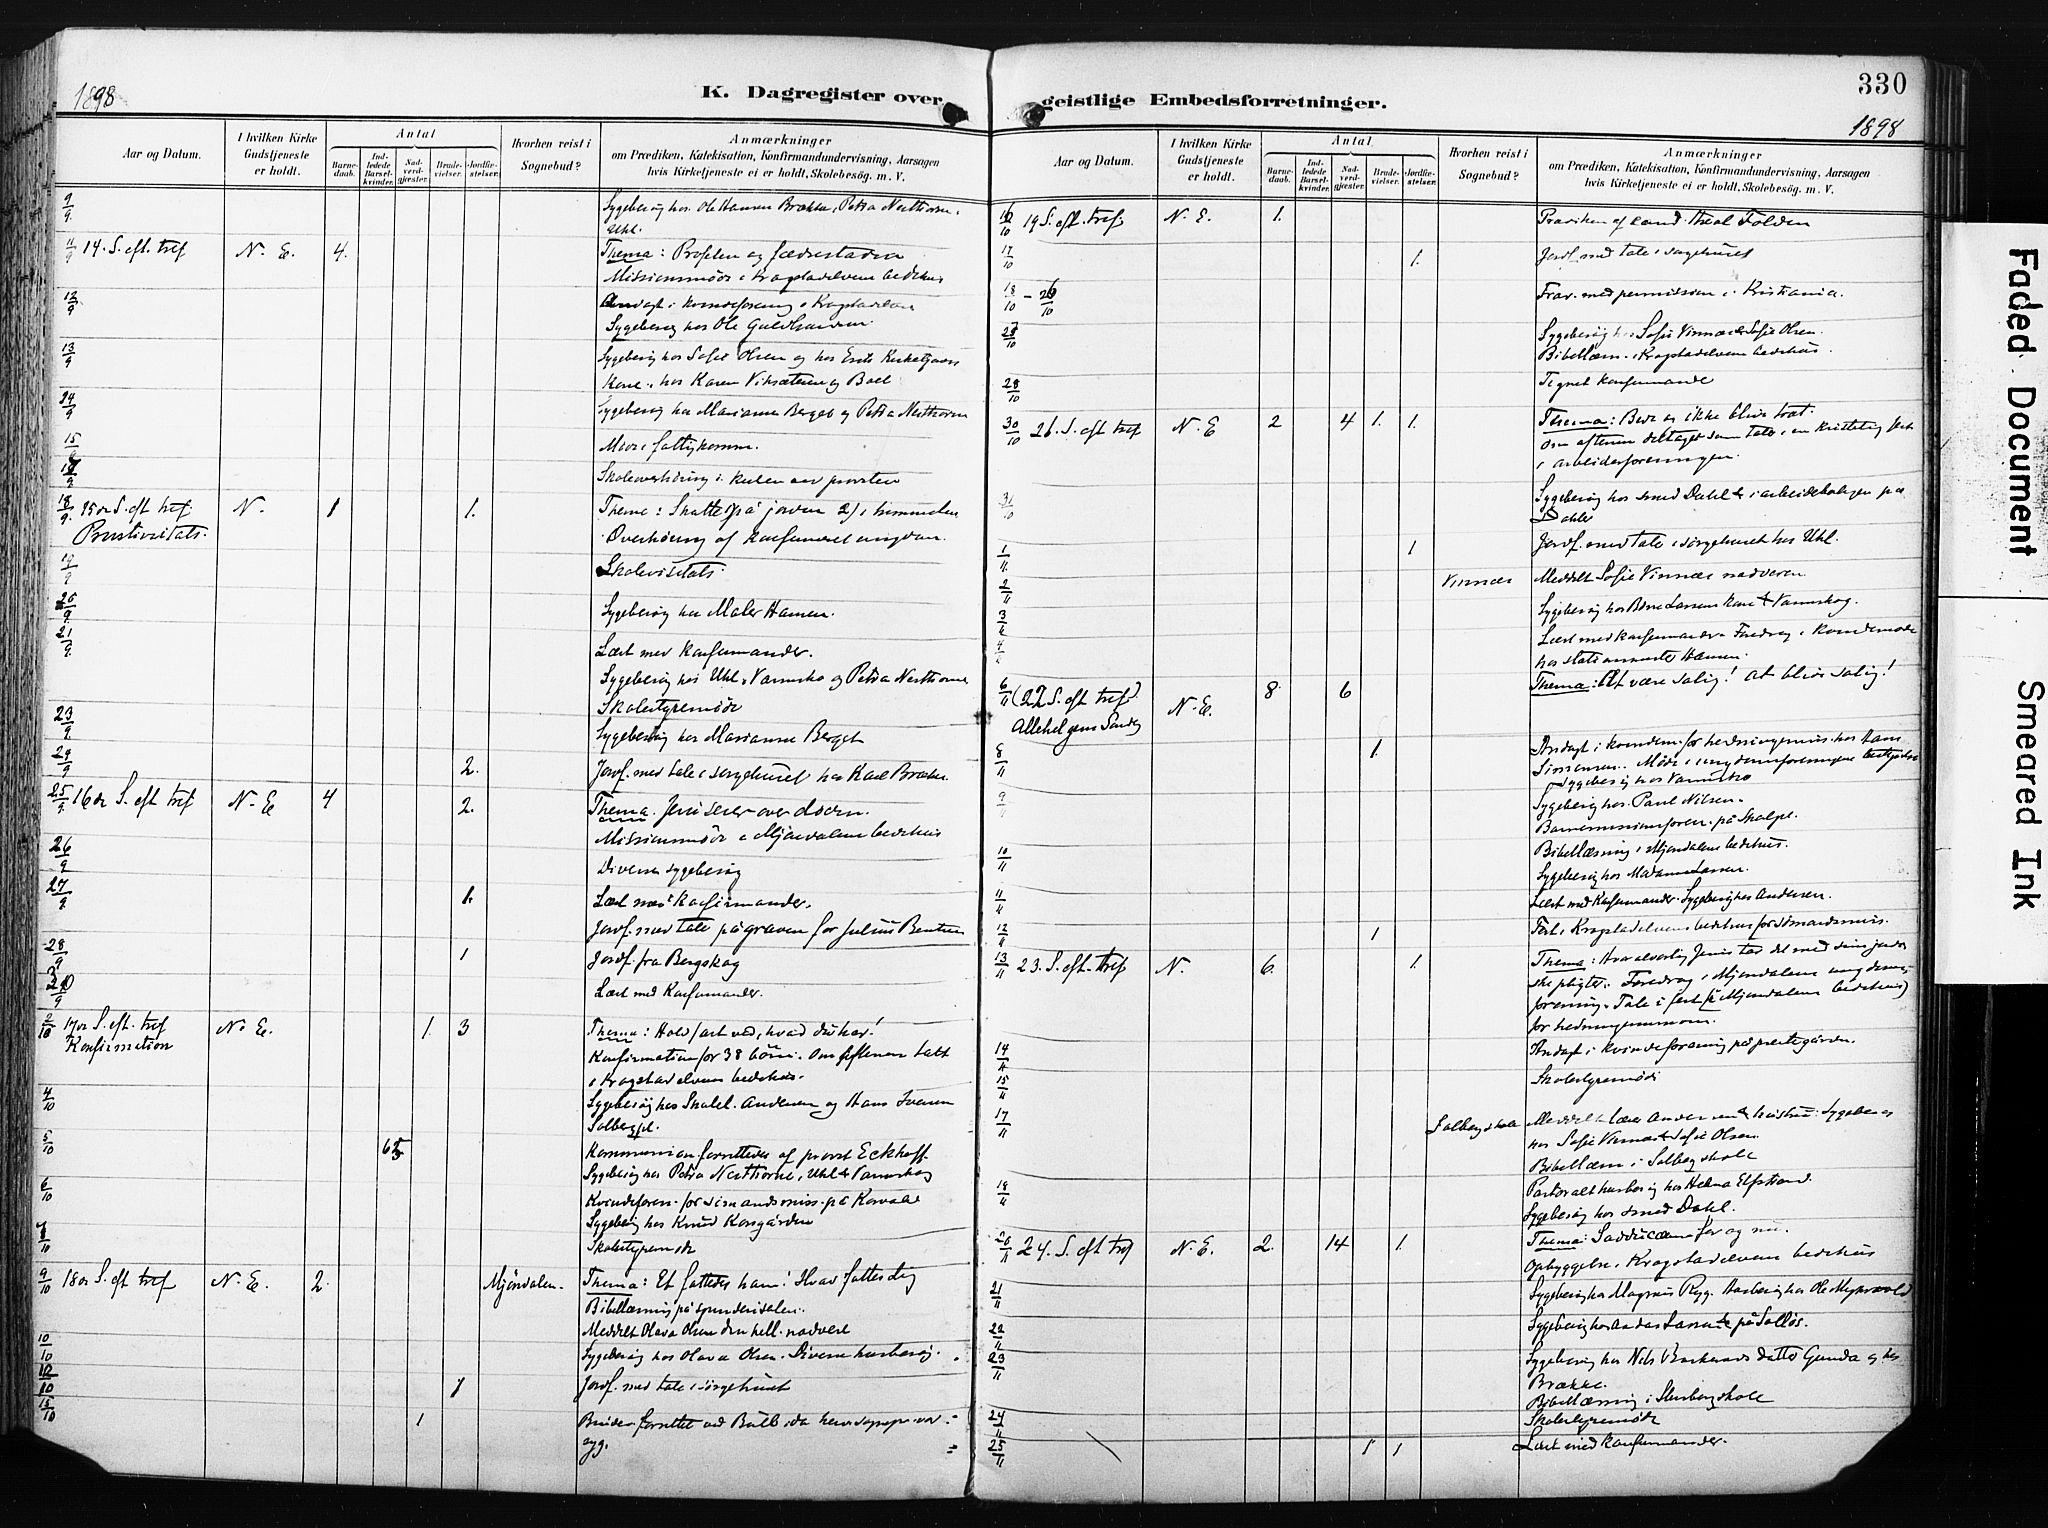 1898
K. Dagregister over
Aar og Datum.
I hvilken Kirke Gudstjeneste er holdt.
Antal
Barnedaab.
Indledede Barselkvinder.
Nadverdgjester.
Brudevielser.
Jordfæstelser.
Hvorhen reist i Sognebud?
Anmærkninger
om Prædiken, Katekisation, Konfirmandundervisning, Aarsagen
hvis Kirketjeneste ei er holdt, Skolebesög. m. V.
9/9 Sygebesög hos Ole Hansen Brække, Petra Nesthorne,
Uhl.
11/9 14. S. eft. tref N. E. 4. Thema: Profeten og fædrestaden
Missionsmöde i Krogstadelvens bedehus
12/9 Andagt i kvindeforening i Krogstadelven
Sygebesög hos Ole Guldhaven
13/9 Sygebesög hos Sofie Olsen og hos
Kone, hos Karen og Boel
14/9 Sygebesög hos Marianne Berget og Petra Nesthorne
15/9 Möde i fattigkomm.
Skoleoverhöring i kirken ved provsten
18/9 15de S. eft tref. N. 1 1. Thema: Skatte på jorden 2) i himmelen
Provstivisitats. Overhöring af konfirmeret ungdom.
19/9 Skolevisitats.
20/9 Sygebesög hos Maler Hansen.
21/9 Læst med Konfirmander.
Sygebesög hos Uhl, og Petra Nesthorne
Skolestyremöde
23/9 Sygebesög hos Marianne Berget
24/9 2. Jordf. med tale i sörgehuset hos Karl
25/9 16de S. eft tref N. E 4 2. Thema. Jesu seier over döden.
Missionsmöde i Mjöndalens bedehus
26/9 Diverse sygebesög
27/9 1. Læst med Konfirmander.
Jordf. med tale på graven for Julius
28/9 1 Jordf. fra Bergskog
Læst med Konfirmander.
2/10 17de S. eft. tref N. E. 1. 3 Thema: Hold fast ved, hvad du har!
Konfirmation Konfirmation for 38 börn. Om aftenen talt
i Krogstadelvens bedehus.
4/10 Sygebesög hos Skolel. Andersen og Hans Iversen
Solbergpl.
5/10 Kommunion forrettedes af provst Eckhoff
Sygebesög hos Petra Nesthorne, Uhl
6/10 Kvindeforen. for sömandsmiss. på Korvald
Sygebesög hos Knud Korsgården
8/10 Skolestyremöde
9/10 18de S. eft tref N. E. 2. Mjöndalen. Thema: Et fattedes ham! Hvad fattes dig
Bibellæsning på spinderisalen.
Meddelt Olava Olsen den hell. nadvere
10/10 Sygebesög hos Olava Olsen. Diverse husbesög.
12/10 1 Jordf. med tale i sörgehuset
15/10 1 syg.
330
1898
geistlige Embedsforretninger.
Aar og Datum.
I hvilken Kirke Gudstjeneste er holdt.
Antal
Barnedaab.
Indledede Barselkvinder.
Nadverdgjester.
Brudevielser.
Jordfæstelser.
Hvorhen reist i Sognebud?
Anmærkninger
om Prædiken, Katekisation, Konfirmandundervisning, Aarsagen
hvis Kirketjeneste ei er holdt, Skolebesög. m. V.
16/10 19 S. eft. tref. N. E. 1. Prædiken af cand. theol Folden
17/10 1. Jordf. med tale i sörgehuset
18/10 – 26/10 Frav. med permission i Kristiania.
27/10 Sygebesög hos Sofie Vinnæs & Sofie Olsen.
Bibellæsn. i Krogstadelvens bedehus.
28/10 Tegnet konfirmander
30/10 21. S. eft tref N. E 2 4 1. 1. Thema: Bede og ikke blive træt.
Om aftenen deltaget som taler i en kristelig fest
i arbeiderforeningen.
31/10 Sygebesög hos smed Dahl & i arbeiderboligen på
Dahler
1/11 1 Jordf. med tale i sörgehuset hos Uhl.
2/11 Vinnæs Meddelt Sofie Vinnæs nadveren
3/11 Sygebesög hos Larsens kone &
4/11 Læst med konfirmander. Foredrag i kvindemöde
hos stationsmester Hansen.
6/11 (22 S. eft tref) N. E. 8. 6 Thema: At være salig! At blive salig!
Allehelgens Söndag
8/11 1. Andagt i kvindem. for hedningemiss. hos Hans
Simensen. Möde i ungdomsforeningens bestyrelse
Sygebesög hos
9/11 Sygebesög hos Paul Nilsen.
Barnemissionsforen. på
10/11 Bibellæsning i Mjöndalens bedehus.
Sygebesög hos Madame Larsen.
11/11 Læst med Konfirmander. Sygebesög hos Andersen.
12/11 1 Fest i Krogstadelvens bedehus for sömandsmiss.
13/11 23. S. eft. tref N. 6. 1. Thema: Hvor alvorlig Jesus tar det med sine jordi-
ske pligter. Foredrag i Mjöndalens ungdoms-
forening. Tale i fest (i Mjöndalens bedehus)
for hedningemissionen.
14/11 Andagt i kvindeforening på prestegården.
15/11 Skolestyremöde
17/11 Solberg skole Meddelt lærer Andersen & hustru. Sygebesög
hos Sofie Vinnæs & Sofie Olsen.
Bibellæsn. i Solberg skole
18/11 Pastoralt husbesög hos Helma Elfstrand.
Sygebesög hos smed Dahl.
20/11 24. S. eft tref N. E. 2. 14 1. Thema: Sadducæerne för og nu.
Opbyggelse i Krogstadelvens bedehus
21/11 Sygebesög hos Magnus Rygg. Husbesög hos Ole
22/11 Sygebesög hos Larsen & på Solløs.
23/11 Sygebesög hos Nils datter Gunda og hos
Brække.
Bibellæsning i Stenberg skole
24/11 Skolestyremöde
25/11 1 1. Læst med konfirmander.
Faded Document
Smeared Ink